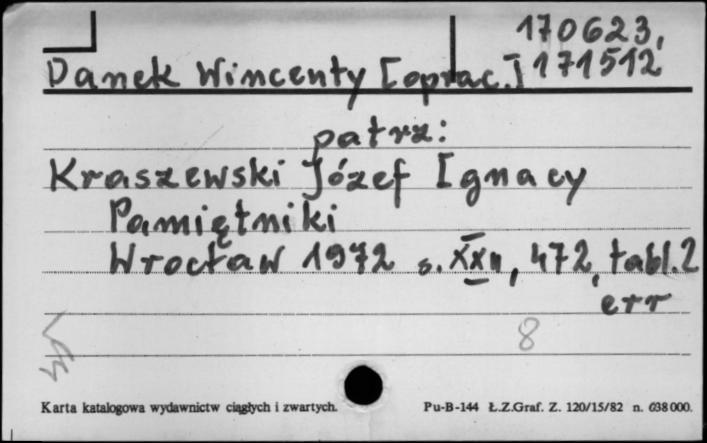 170623,
Danek Wincenty [oprac.] 171512
patrz:
Kraszewski Józef Ignacy
Pamiętniki
Wrocław 1972 s. XXII, 472, tabl. 2
err
8
Karta katalogowa wydawnictw ciągłych i zwartych. Pu-B-144 Ł.Z.Graf. Z. 120/15/82 n. 638000.